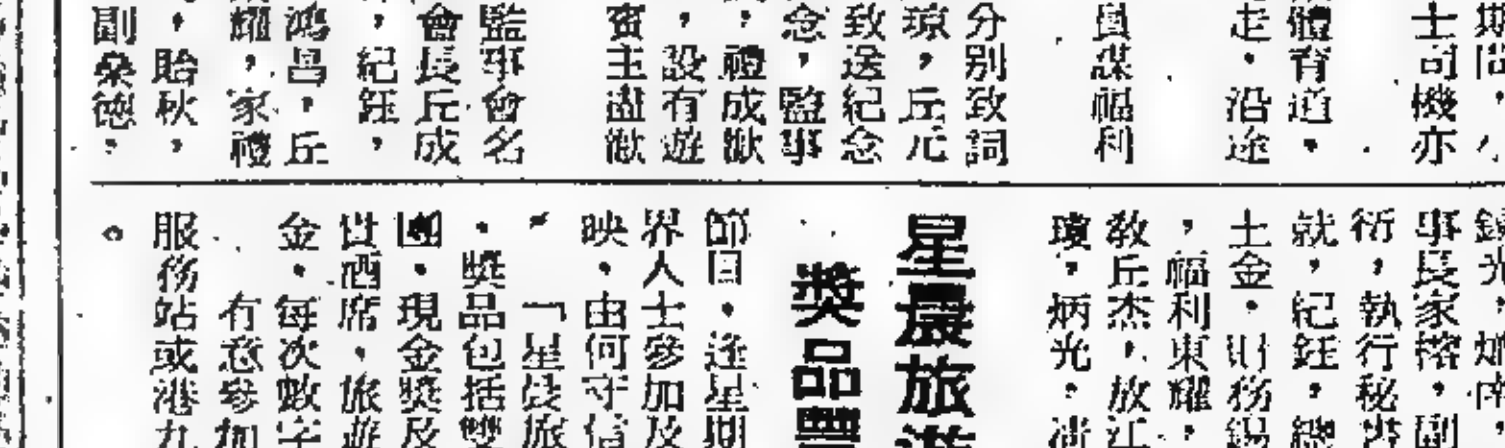 期間，小
士司機亦
體育道，
走，沿途
員謀福利
分别致詞
琼，丘元
致送紀念
念，監事
，禮成歡
，設有遊
賓主盡歡
監事會名
會長丘成
，紀鈺，
鴻昌，丘
耀，家禮
，貽秋，
副榮德，
鏡光，
事長家榕，副
衍，執行秘書
就，紀鈺，總
士金，財務錫
，福利東耀，
敎丘杰，放江
瓊，炳光，清
星晨旅遊
獎品豐
節目，逢星期
界人士參加及
映，由何守信
「星晨旅
，獎品包括雙
團，現金獎及
世酒席，旅遊
金，每次數字
有意參加
服務站或港九
。